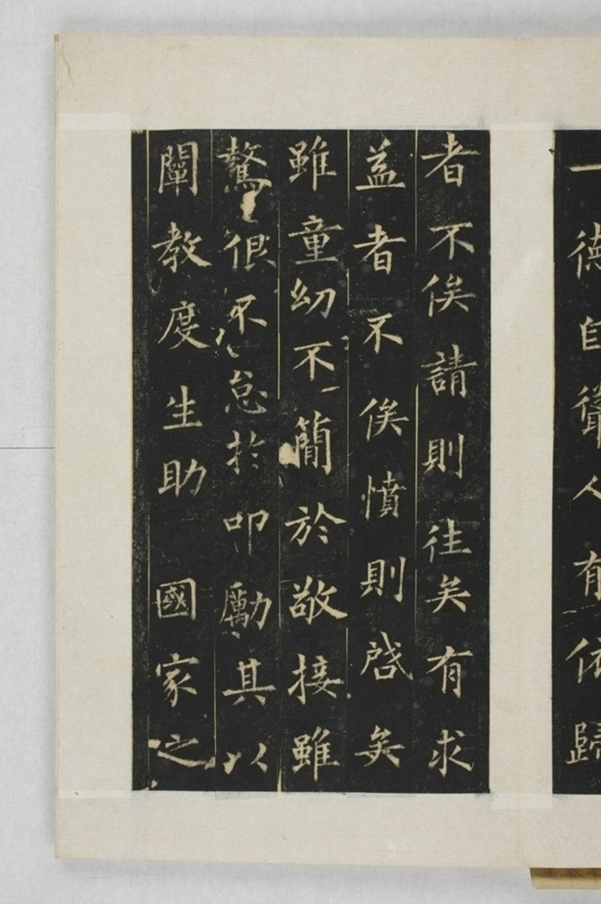 一德自聳人有依歸
者不俟請則往矣有求
益者不俟憤則啓矣
雖童幼不簡於敬接雖
驁佷不怠於叩勵其以
闡教度生助 國家之